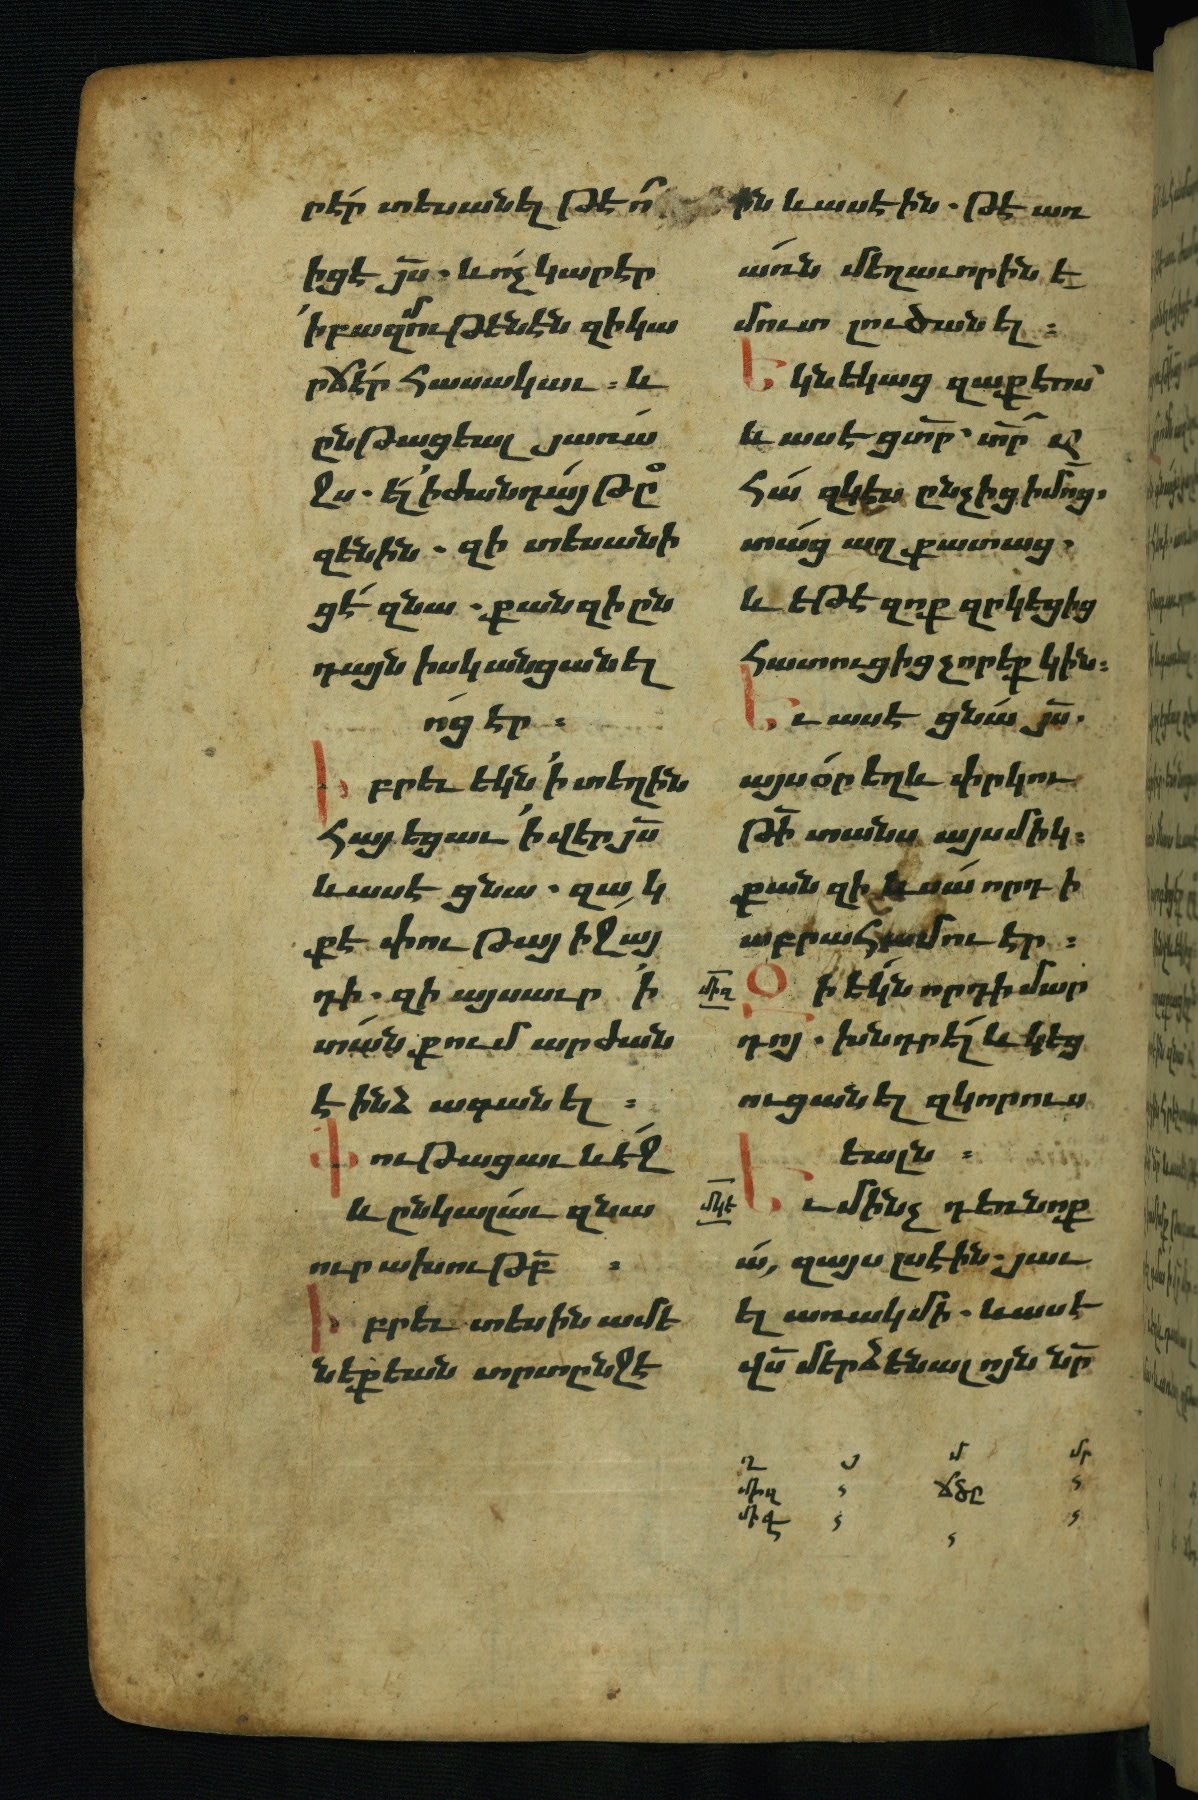 րէր տեսանել թէ ո՞
իցէ յս̅ · և ոչ կարէր
ի բազմութենէն զի կա
րճէր հասակաւ ։ և
ընթացեալ յառա
ջս · ել ի ժանդայ թը
զենին · զի տեսանի
ցէ զնա · քանզի ըն
դայն իսկ անցանել
ոց էր ։
Իբրեւ եկն ի տեղին
հայեցաւ ի վեր յս̅
և ասէ ցնա · զակ
քէ փութայ իջ այ
դի · զի այսաւր ի
տան քում արժան
է ինձ ագանել ։
Փութացաւ և էջ
և ընկալաւ զնա
ուրախութբ̅ ։
Իբրեւ տեսին ամե
նեքեան տրտընջէ
ին և ասէին · թէ առ
առն մեղաւորին է
մուտ լուծանել ։
Եկն եկաց զաքէոս
և ասէ ցտր̅ · տր̅ ա
հա զկէս ընչից իմոց ·
տաց աղքատաց ·
և եթէ զոք զրկեցից
հատուցից չորեքկին ։
Եւ ասէ ցնա յս̅ ·
այսօր եղև փրկու
թի̅ տանս այսմիկ ։
քանզի և սա որդի
աբրահամու էր ։
միզ Զի եկն որդի մար
դոյ · խնդրել և կեց
ուցանել զկորուս
եալն ։
մկե Եւ մինչ դեռ նոք
ա, զայս լսէին · յաւ
ել առակ մի · և ասէ
վս̅ մերձ ենալոյն նր̅
ղ ջ մ մր
միզ ՙ ճծը ՙ
միզ ՙ ՙ ՙ